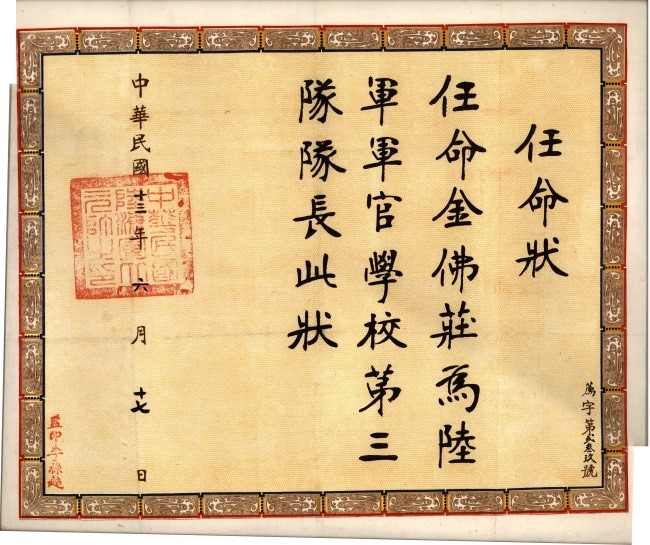 任命狀
任命金佛莊為陸
軍軍官學校第三
隊隊長此狀
中華民國十三年六月十七日
中華民國
陸海軍大
元帥之印
薦字第叁玖號
監印李祿超